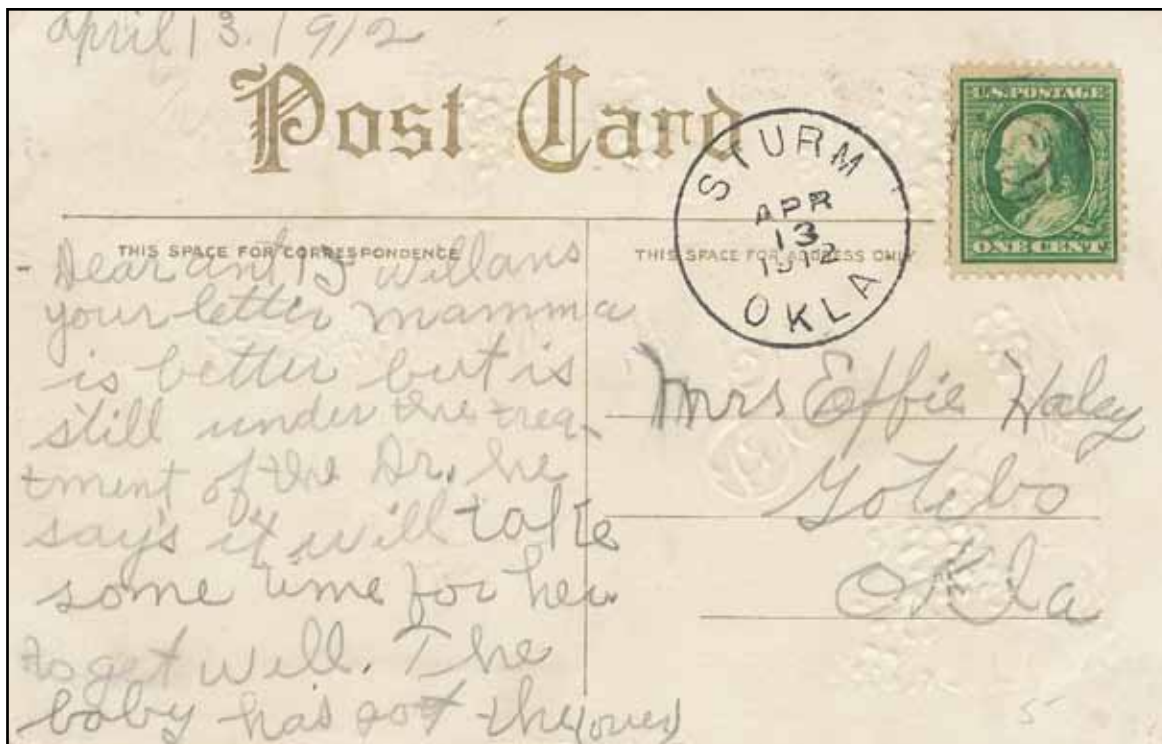 April 13. 1912
Post Card
U.S. POSTAGE
ONE CENT
STURM
APR
13
1912
OKLA
THIS SPACE FOR CORRESPONDENCE
THIS SPACE FOR ADDRESS ONLY
Dear ant I willans
your letter mamma
is better but is
still under the trea-
tment of the Dr. he
says it will take
some time for her
to get will. The
baby has got the
Mrs Effie Halsy
Gotebo
Okla
5